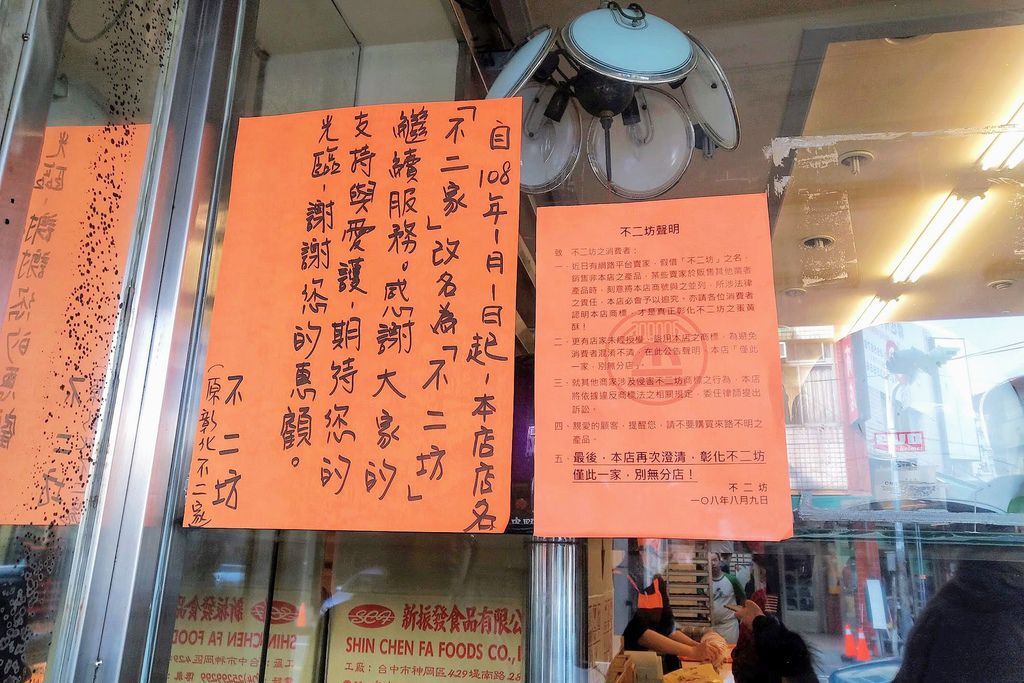 自108年1月1日起，本店店名
「不二家」改名為「不二坊」
繼續服務。感謝大家的
支持與愛護，期待您的
光臨，謝謝您的惠顧。
不二坊
(原彰化不二家)
不二坊聲明
致 不二坊之消費者：
一、近日有網路平台賣家，假借「不二坊」之名，
銷售非本店之產品，某些賣家於販售其他業者
產品時，刻意將本店商號與之並列，所涉法律
之責任，本店必會予以追究。亦請各位消費者
認明本店商標，才是真正彰化不二坊之蛋黃
酥！
二、更有店家未經授權，誤用本店之商標，為避免
消費者混淆不清，在此公告聲明，本店「僅此
一家，別無分店」。
三、就其他商家涉及侵害不二坊商標之行為，本店
將依據違反商標法之相關規定，委任律師提出
訴訟。
四、親愛的顧客，提醒您，請不要購買來路不明之
產品。
五、最後，本店再次澄清，彰化不二坊
僅此一家，別無分店！
不二坊
一〇八年八月九日
新振發食品有限公
SHIN CHEN FA FOODS CO.,
工廠：台中市神岡區429堤南路